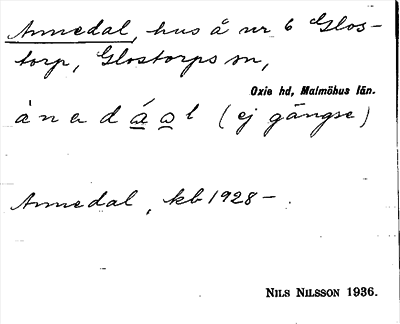 Annedal, hus å nr 6 Glos-
torp, Glostorps sn,
Oxie hd, Malmöhus län.
à n e d á a l (ej gängse)
Annedal, kb 1928 –.
NILS NILSSON 1936.